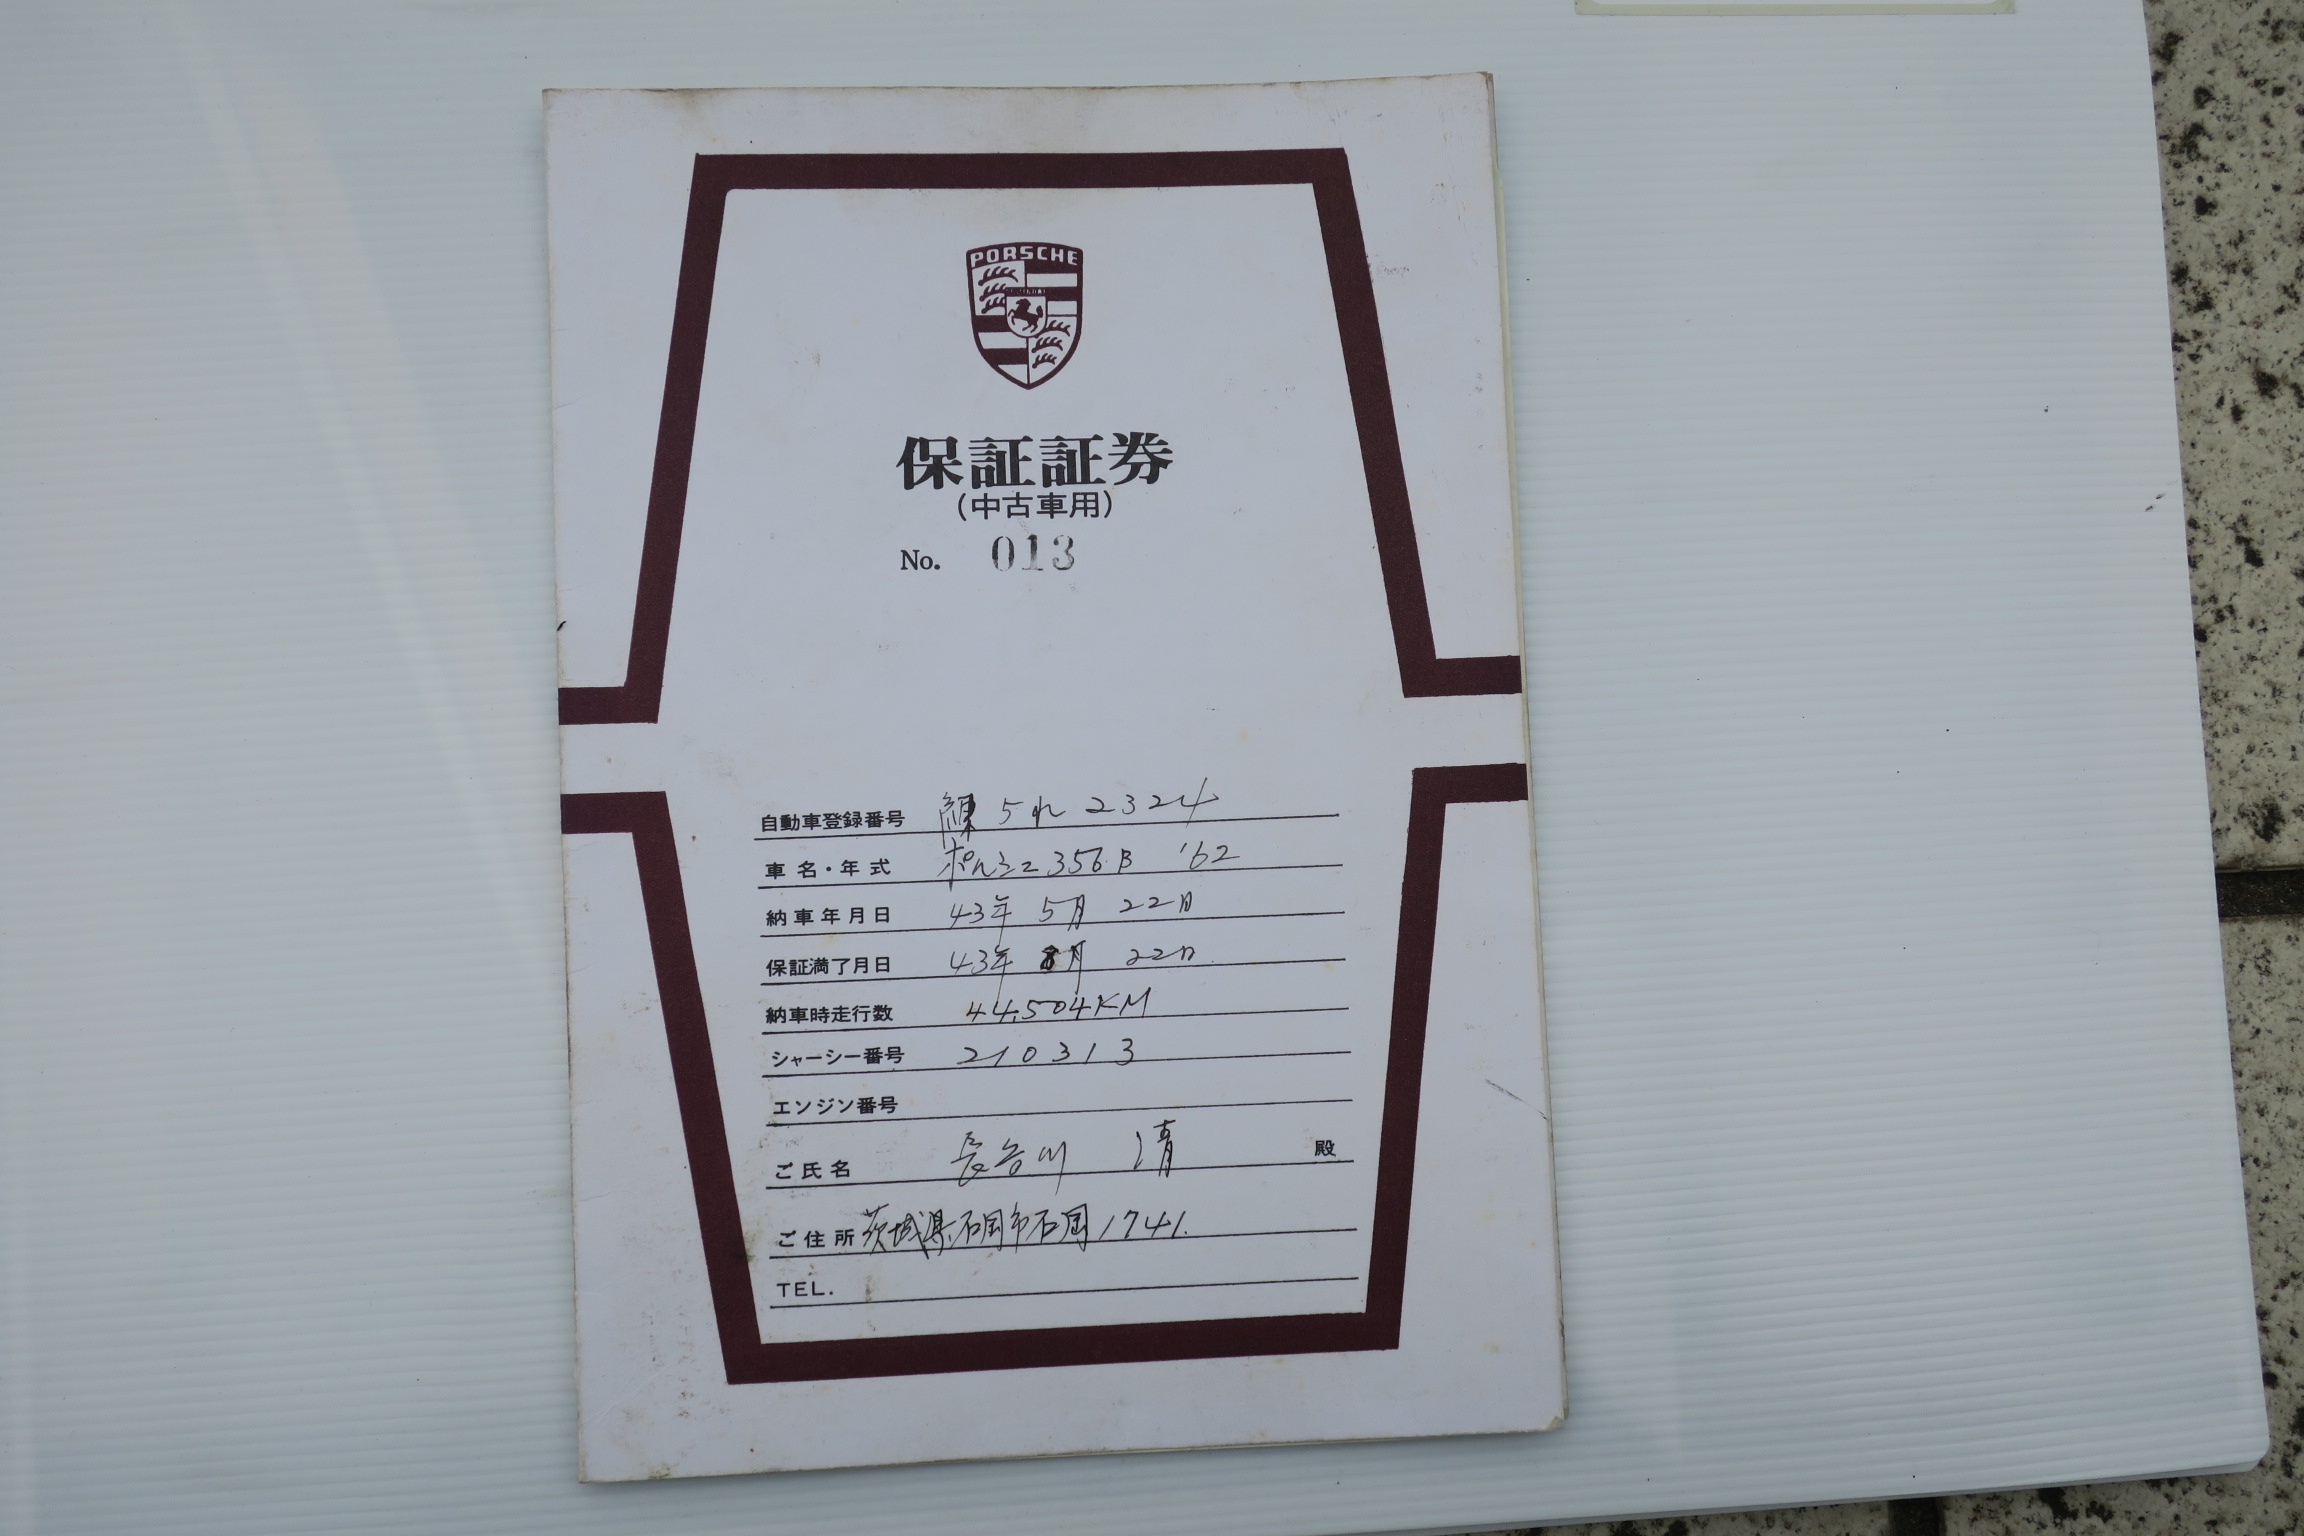 PORSCHE
保証証券
(中古車用)
No. 013
自動車登録番号 練5れ2324
車名・年式 ポルシェ356B '62
納車年月日 43年5月22日
保証満了月日 43年8月22日
納車時走行数 44,504KM
シャーシー番号 210313
エンジン番号
ご氏名 長谷川 清 殿
ご住所 茨城県石岡市石岡1741.
TEL.